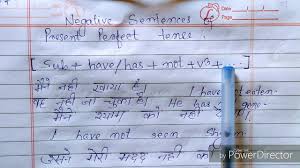 Negative Sentences of
Present Perfect tense.
[Sub + have/has + not + V3 +
मैंने नहीं खाया है। I have not eaten.
वह नहीं जा चुका है। He has gone
मैंने श्याम को नहीं
I have not seen Shyam
उसने मेरी मदद नहीं की
Made With
PowerDirector